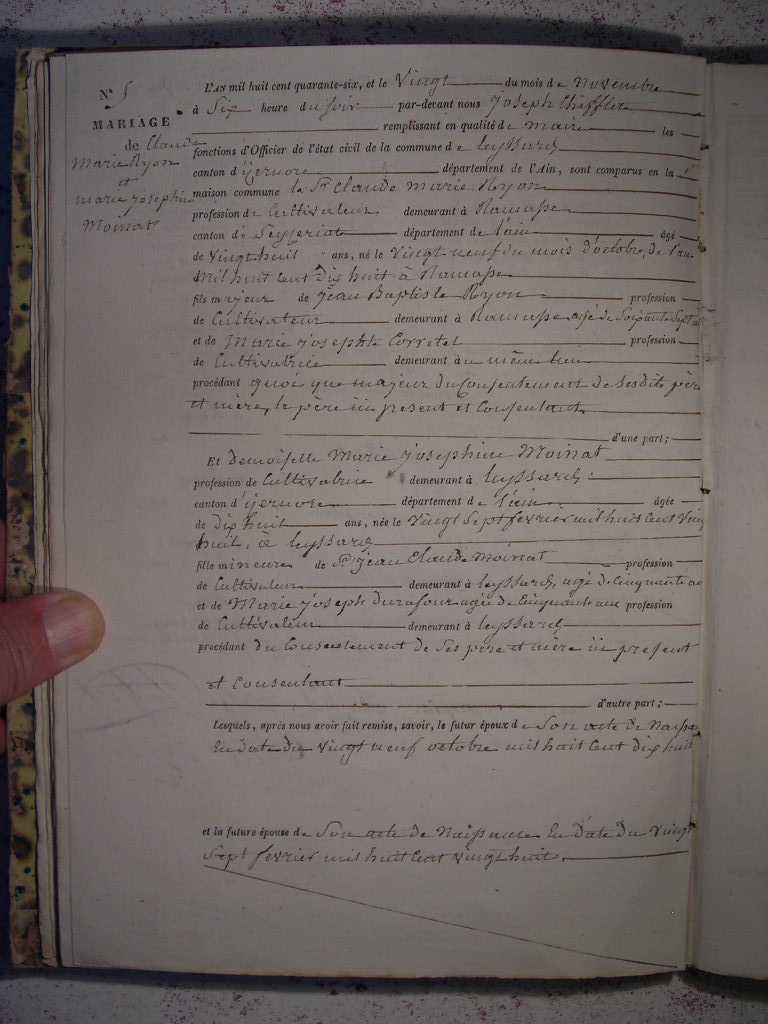 N° 5
MARIAGE
de Claude
Marie Ryon
et
marie josephine
Moinat
L'AN mil huit cent quarante-six, et le Vingt du mois de Novembre
à Six heure du soir par-devant nous joseph Chifflet
remplissant en qualité de maire les
fonctions d'Officier de l'état civil de la commune de leyssard
canton d'yzernore département de l'Ain, sont comparus en la
maison commune le Sr Claude Marie Ryon
profession de Cultivateur demeurant à Ramasse
canton de Ceyzeriat département de l'ain âgé
de Vingt huit ans, né le Vingt neuf du mois d'octobre, de l'an
Mil huit Cent dix huit à Ramasse
fils majeur de jean Baptiste Ryon profession
de Cultivateur demeurant à Ramasse agé de Soixante Sept
et de Marie josephte Corretel profession
de Cultivatrice demeurant au même lieu
procédant quoi que majeur du Consentement de Sesdits père
et mère, le père ici present et Consentant.
d'une part;
Et Demoiselle Marie josephine Moinat
profession de Cultivatrice demeurant à leyssard
canton d'yzernore département de l'ain âgée
de Dix huit ans, née le Vingt Sept fevrier mil huit Cent Vingt
huit, à leyssard
fille mineure de Sr jean Claude Moinat profession
de Cultivateur demeurant à leyssard, agé de Cinquante
et de Marie joseph durafour agée de Cinquante ans profession
de Cultivateur demeurant à leyssard
procédant du Consentement de Ses père et mère ici present
et Consentant
d'autre part;
Lesquels, après nous avoir fait remise, savoir, le futur époux de Son acte de
En date du Vingt neuf octobre mil huit Cent dix huit
et la future épouse de Son acte de Naissance En date du Vingt
Sept fevrier mil huit Cent Vingt huit.